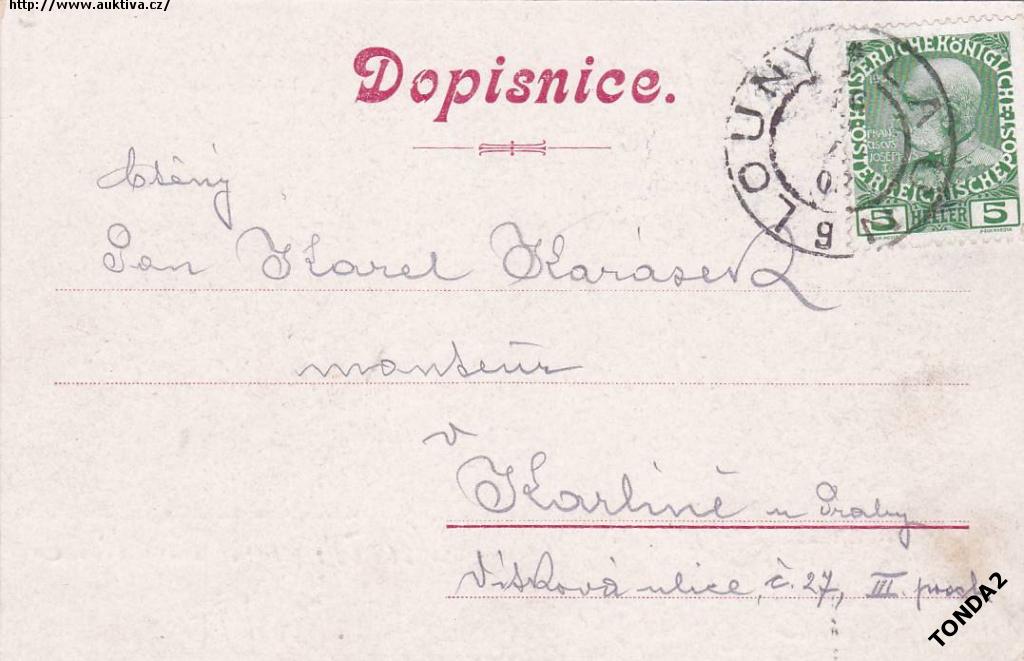 http://www.auktiva.cz/
Dopisnice.
LOUNY
KAISERLICHE KÖNIGLICHE ÖSTERREICHISCHE POST
FRANCISCVS JOSEPH I
5 HELLER 5
6
08
Ctěný
Pan Karel Karásek
monteur
v
Karlíně u Prahy
Vítkova ulice, č. 27, III. posch
TONDA2